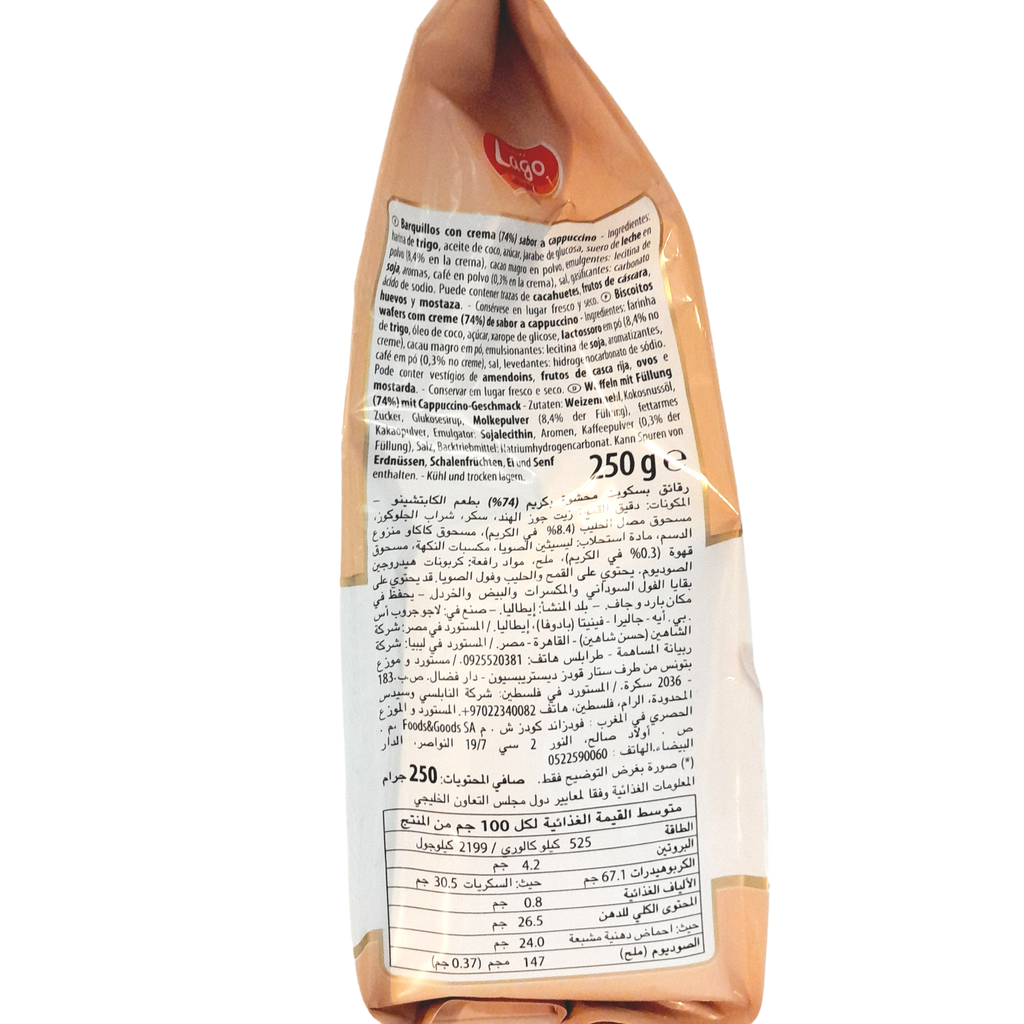 Lago
Ⓔ Barquillos con crema (74%) sabor a cappuccino - Ingredientes:
harina de trigo, aceite de coco, azúcar, jarabe de glucosa, suero de leche en
polvo (8,4% en la crema), cacao magro en polvo, emulgentes: lecitina de
soja, aromas, café en polvo (0,3% en la crema), sal, gasificantes: carbonato
ácido de sodio. Puede contener trazas de cacahuetes, frutos de cáscara,
huevos y mostaza. - Consérvese en lugar fresco y seco. Ⓟ Biscoitos
wafers com creme (74%) de sabor a cappuccino - Ingredientes: farinha
de trigo, óleo de coco, açúcar, xarope de glicose, lactossoro em pó (8,4% no
creme), cacau magro em pó, emulsionantes: lecitina de soja, aromatizantes,
café em pó (0,3% no creme), sal, levedantes: hidrogenocarbonato de sódio.
Pode conter vestígios de amendoins, frutos de casca rija, ovos e
mostarda. - Conservar em lugar fresco e seco. Ⓓ Waffeln mit Füllung
(74%) mit Cappuccino-Geschmack - Zutaten: Weizenmehl, Kokosnussöl,
Zucker, Glukosesirup, Molkepulver (8,4% der Füllung), fettarmes
Kakaopulver, Emulgator: Sojalecithin, Aromen, Kaffeepulver (0,3% der
Füllung), Salz, Backtriebmittel: Natriumhydrogencarbonat. Kann Spuren von
Erdnüssen, Schalenfrüchten, Ei und Senf
enthalten. - Kühl und trocken lagern.
250 g ℮
رقائق بسكويت محشوة بكريم (74%) بطعم الكابتشينو –
المكونات: دقيق القمح، زيت جوز الهند، سكر، شراب الجلوكوز،
مسحوق مصل الحليب (8.4% في الكريم)، مسحوق كاكاو منزوع
الدسم، مادة استحلاب: ليسيثين الصويا، مكسبات النكهة، مسحوق
قهوة (0.3% في الكريم)، ملح، مواد رافعة: كربونات هيدروجين
الصوديوم. يحتوي على القمح والحليب وفول الصويا. قد يحتوي على
بقايا الفول السوداني والمكسرات والبيض والخردل – يحفظ في
مكان بارد و جاف. – بلد المنشأ: إيطاليا. – صنع في: لاجو جروب أس
.بي. أيه - جاليرا - فينيتا (بادوفا)، إيطاليا. / المستورد في مصر: شركة
الشاهين (حسن شاهين) - القاهرة - مصر. / المستورد في ليبيا: شركة
ريبانة المساهمة - طرابلس هاتف: 0925520381. / مستورد و موزع
بتونس من طرف ستار قودز ديستريبسيون - دار فضال. ص.ب.183
- 2036 سكرة. / المستورد في فلسطين: شركة النابلسي وسيدس
المحدودة، الرام، فلسطين، هاتف 97022340082+. المستورد و الموزع
الحصري في المغرب : فودزاند كودز ش . م Foods&Goods SA .م
ص . أولاد صالح، النور 2 سي 19/7 النواصر، الدار
البيضاء.الهاتف : 0522590060
(*) صورة بغرض التوضيح فقط. صافي المحتويات: 250 جرام
المعلومات الغذائية وفقا لمعايير دول مجلس التعاون الخليجي
متوسط القيمة الغذائية لكل 100 جم من المنتج
الطاقة 525 كيلو كالوري / 2199 كيلوجول
البروتين 4.2 جم
الكربوهيدرات 67.1 جم حيث: السكريات 30.5 جم
الألياف الغذائية 0.8 جم
المحتوى الكلي للدهن 26.5 جم
حيث: احماض دهنية مشبعة 24.0 جم
الصوديوم (ملح) 147 مجم (0.37 جم)